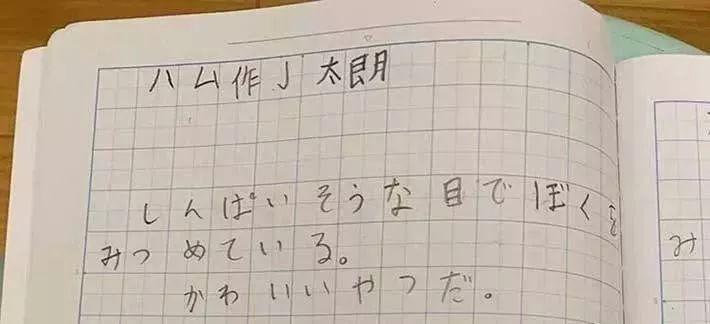 ハム作J 太朗
しんぱいそうな目でぼくを
みつめている。
かわいいやつだ。
み